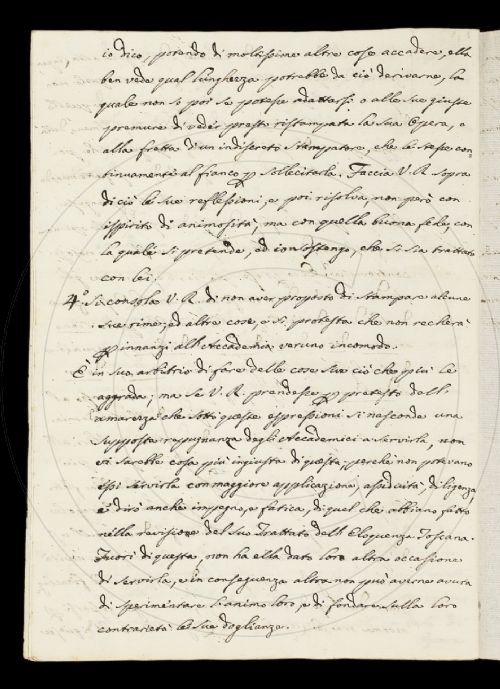 io dico, potendo di moltissime altre cose accadere, ella
ben vede qual lunghezza potrebbe da ciò derivarne, la
quale non so poi se potesse adattarsi o alle sue giuste
premure di veder presto ristampata la sua Opera, o
alla fretta d'un indiscreto Stampatore, che le stesse con=
tinuamente al fianco p sollecitarla. Faccia V. R. sopra
di ciò le sue reflessioni, e poi risolva, non però con
ispirito di animosità, ma con quella buona fede, con
la quale si pretende, ed io sostengo, che si sia trattato
con lei.
4.° Si consola V. R. di non aver proposto di stampare alcune
sue rime, ed altre cose, e si protesta che non recherà
p innanzi all'Accademia veruno incomodo.
È in suo arbitrio di fare delle cose sue ciò che più le
aggrada; ma se V. R. prendesse p pretesto dell'
amarezza che sotto queste espressioni si nasconde una
supposta repugnanza degli Accademici a servirla, non
vi sarebbe cosa più ingiusta di questa, perchè non potevano
essi servirla con maggiore applicazione, assiduità, diligenza
e dirò anche impegno, e fatica, di quel che abbiano fatto
nella revisione del suo Trattato dell'Eloquenza Toscana.
Fuori di questa, non ha ella dato loro altra occasione
di servirla, e in conseguenza altra non può averne avuta
di sperimentare l'animo loro, e di fondare sulla loro
contrarietà le sue doglianze.